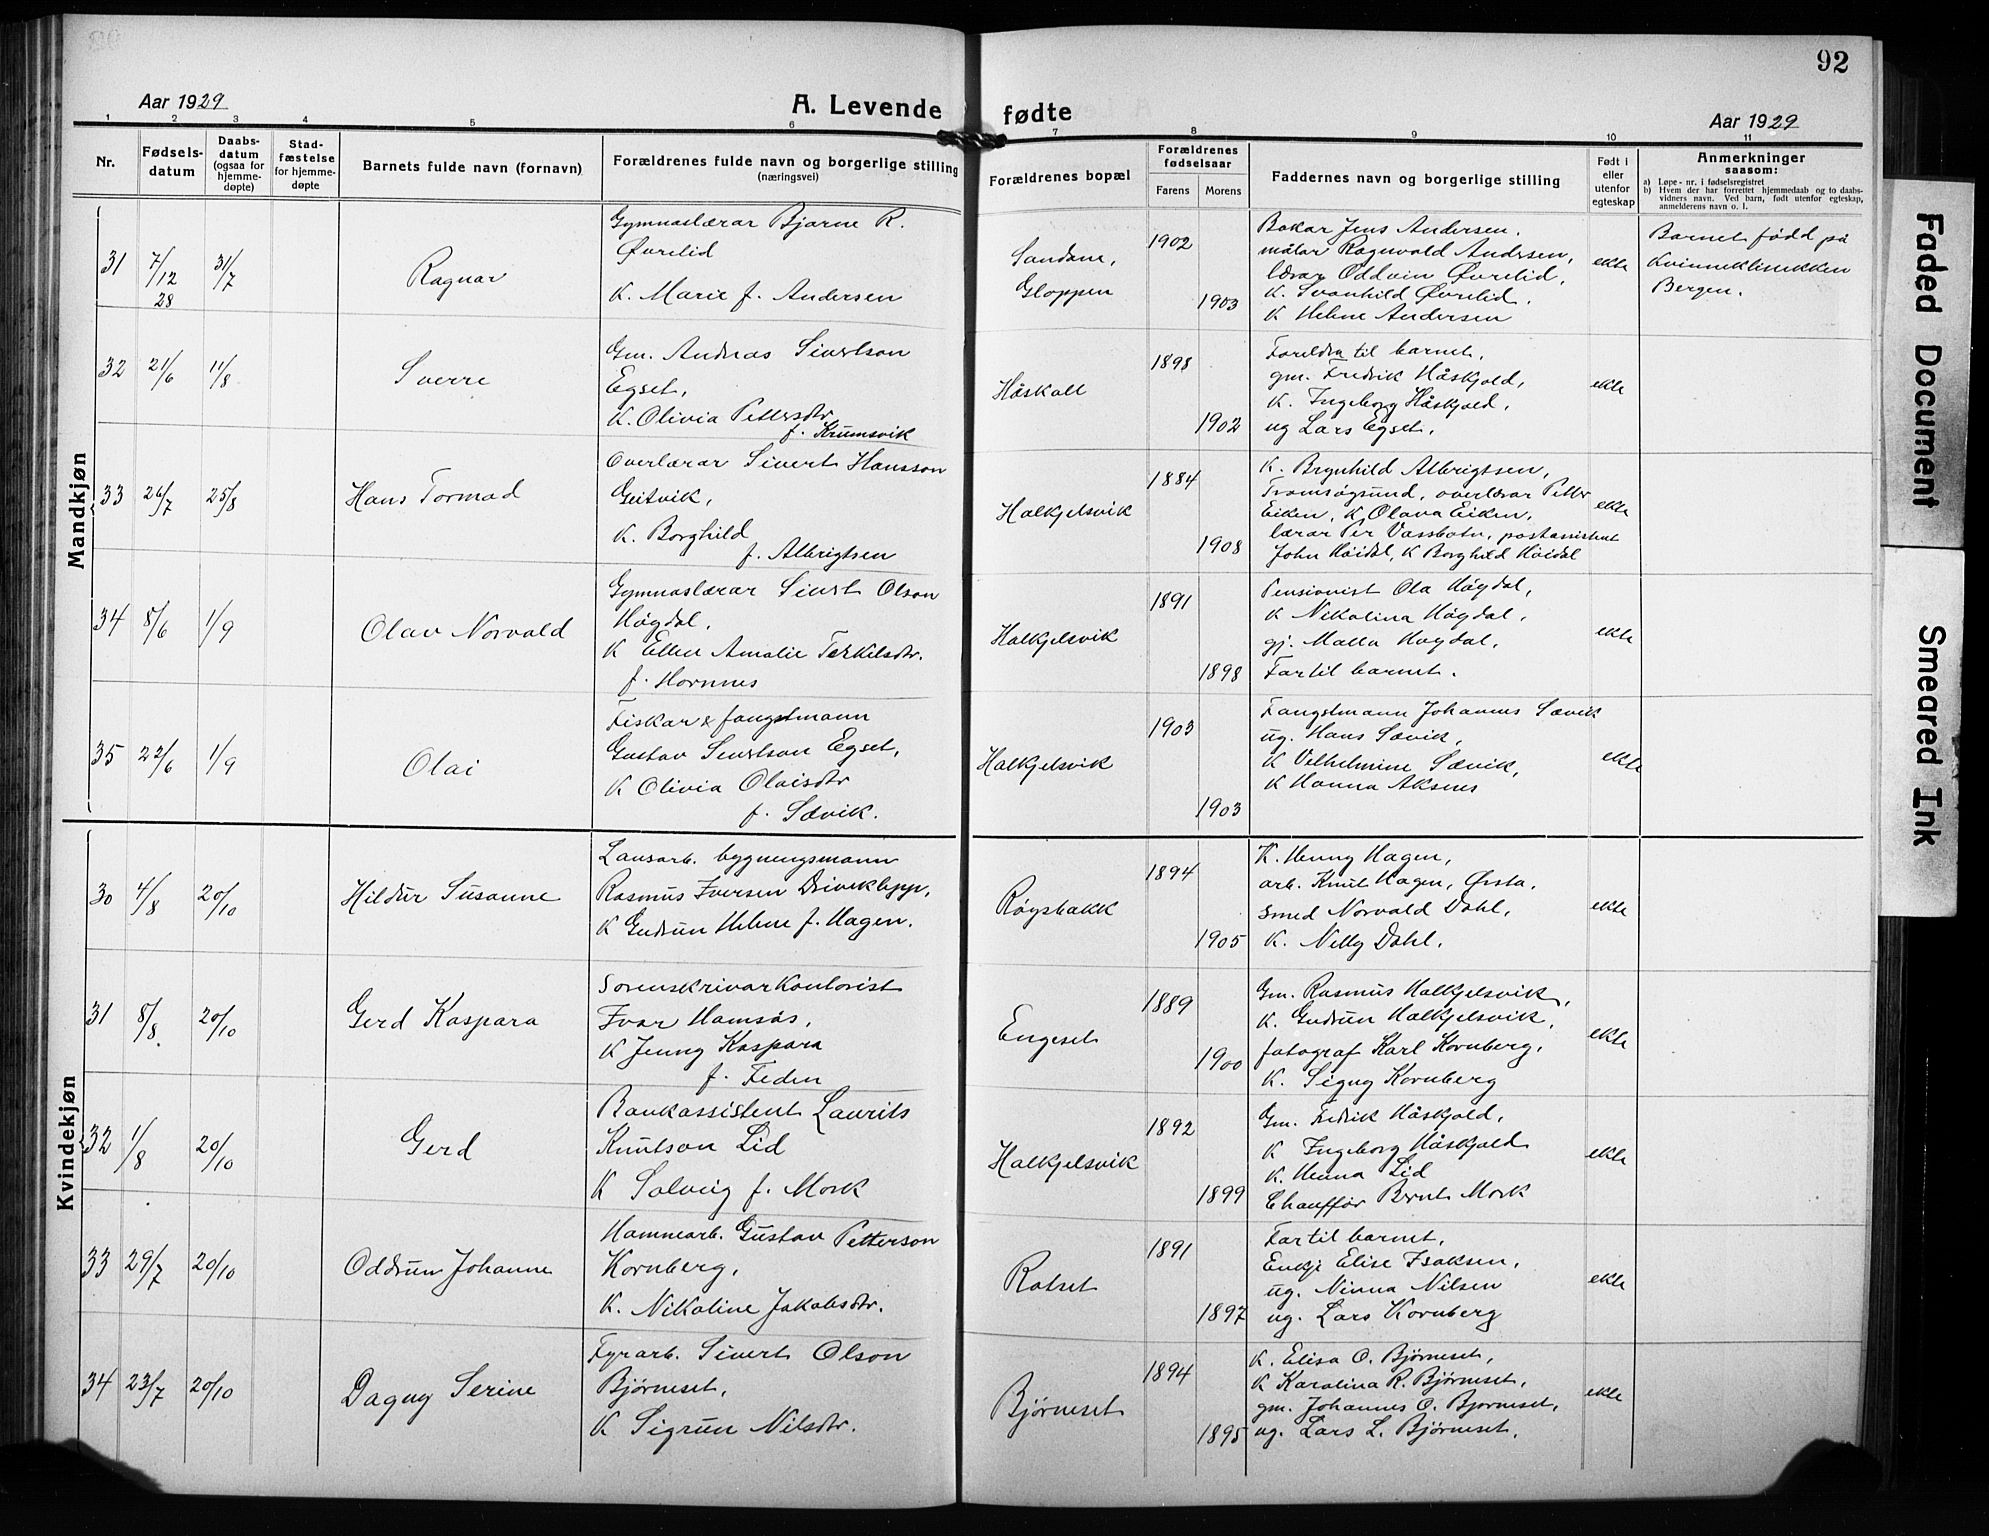 92
Aar 1929
A. Levende
fødte
Aar 1929
1 2 3 4 5 6 7 8 9 10 11
Nr.
Fødsels-
datum
Daabs-
datum
(ogsaa for
hjemme-
døpte)
Stad-
fæstelse
for hjemme-
døpte
Barnets fulde navn (fornavn)
Forældrenes fulde navn og borgerlige stilling
(næringsvei)
Forældrenes bopæl
Forældrenes
fødselsaar
Farens
Morens
Faddernes navn og borgerlige stilling
Født i
eller
utenfor
egteskap
Anmerkninger
saasom:
a) Løpe-nr. i fødselsregistret
b) Hvem der har forrettet hjemmedaab og to daabs-
vidners navn. Ved barn, født utenfor egteskap,
anmelderens navn o. l.
Mandkjøn
31
7/12
28
31/7
Ragnar
Gymnaslærar Bjarne R.
Øvrelid
K. Marie f. Andersen
Sandane,
Gloppen
1902
1903
Bakar Jens Andersen.
målar Ragnvald Andersen,
lærar Oddvin Øvrelid,
K. Svanhild Øvrelid.
K Helene Andersen
ekte
Barnet fødd på
Kvinneklinikken
Bergen.
32
21/6
11/8
Sverre
Gm. Andreas Sivertson
Egset,
K. Olivia Pettersdtr.
f. Krumsvik
Håskall
1898
1902
Foreldra til barnet,
gm. Fredrik Håskjold,
K. Ingeborg Håskjold,
ug Lars Egset.
ekte
33
26/7
25/8
Hans Tormod
Overlærar Sivert Hansson
Geitvik,
K. Borghild
f. Albrigtsen
Halkjelsvik
1884
1908
K. Brynhild Albrigtsen,
Tromsøysund, overlærar Petter
Eiken, K. Olava Eiken,
lærar Per Vassbotn, postassistent
John Høidal, K Borghild Høidal
ekte
34
8/6
1/9
Olav Norvald
Gymnaslærar Sivert Olson
Høgdal,
K Ellen Amalie Terkelsdtr.
f. Hornnes
Halkjelsvik
1891
1898
Pensionist Ola Høgdal,
K Nikolina Høgdal,
gj. Malla Høgdal,
Far til barnet.
ekte
35
22/6
1/9
Olai
Fiskar & fangstmann
Gustav Sivertson Egset,
K Olivia Olaisdtr
f. Sævik.
Halkjelsvik
1903
1903
Fangstmann Johannes Sævik
ug. Hans Sævik,
K Vilhelmine Sævik,
K Hanna Aksnes
ekte
Kvindekjøn
30
4/8
20/10
Hildur Susanne
Lausarb. bygningsmann
Rasmus Iversen Driveklepp,
K Gudrun Helene f. Hagen.
Røysbakk
1894
1905
K. Henny Hagen,
arb. Knut Hagen, Ørsta.
smed Norvald Dahl,
K. Nelly Dahl.
ekte
31
8/8
20/10
Gerd Kaspara
Sorenskrivarkontorist
Ivar Hamsås,
K Jenny Kaspara
f. Feden
Engeset
1889
1900
Gm. Rasmus Halkjelsvik,
K. Gudrun Halkjelsvik,
fotograf Karl Kornberg,
K. Signy Kornberg
ekte
32
1/8
20/10
Gerd
Bankassistent Laurits
Knutson Lid
K Solveig f. Mork
Halkjelsvik
1892
1899
Gm. Fredrik Håskjold,
K Ingeborg Håskjold
K. Henna Lid
Chauffør Bernt Mork
ekte
33
29/7
20/10
Oddrun Johanne
Hamnearb. Gustav Petterson
Kornberg,
K. Nikoline Jakobsdtr.
Rotset
1891
1897
Far til barnet,
Enkje Elise Isaksen,
ug. Ninna Nilsen
ug. Lars Kornberg
ekte
34
23/7
20/10
Dagny Serine
Fyrarb. Sivert Olson
Bjørneset,
K Sigrun Nilsdtr.
Bjørneset
1894
1895
K. Elisa O. Bjørneset,
K Karolina R. Bjørneset,
gm. Johannes O. Bjørneset,
ug. Lars L. Bjørneset.
ekte
Faded Document
Smeared Ink